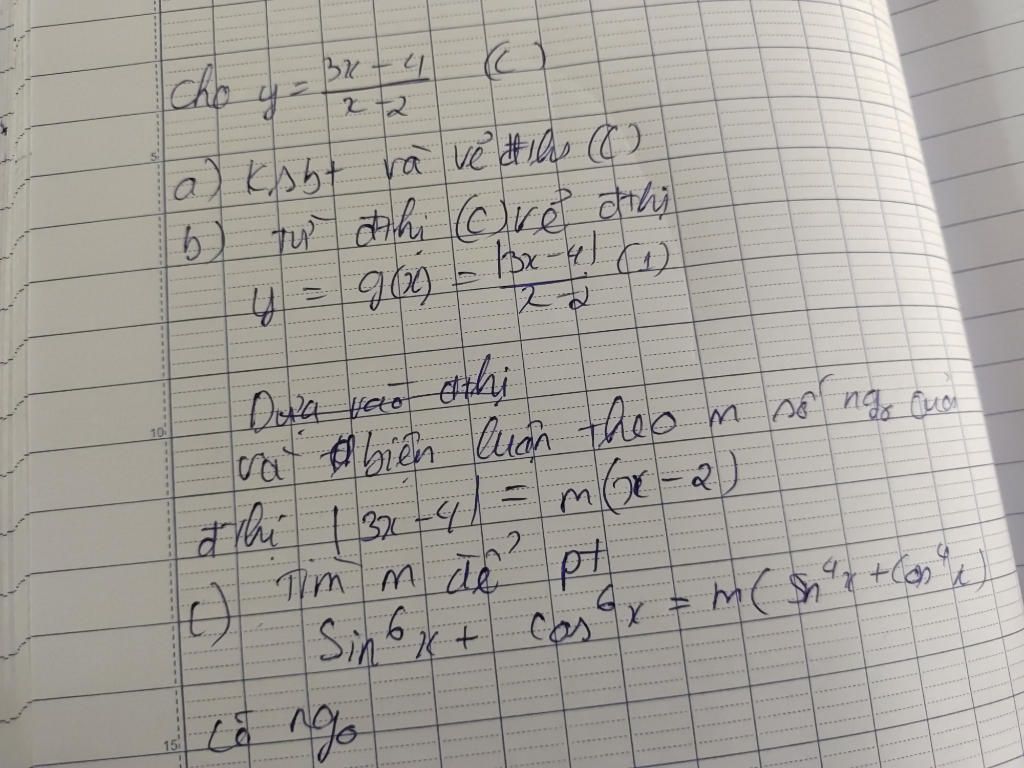 Cho y = \frac{3x-4}{x-2} (C)
5
a) Ksbt và vẽ đthị (C)
b) Từ đthị (C) vẽ đthị
y = g(x) = \frac{|3x-4|}{x-2} (1)
Dựa vào đthị
10
và biện luận theo m số ngo của
đthị |3x-4| = m(x-2)
c) Tìm m để pt
Sin^6 x + cos^6 x = m(Sin^4 x + Cos^4 x)
có ngo
15